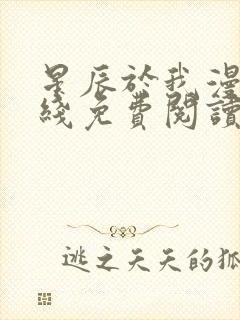 星辰於我漫
綫免費閱讀
逃之夭夭的狐